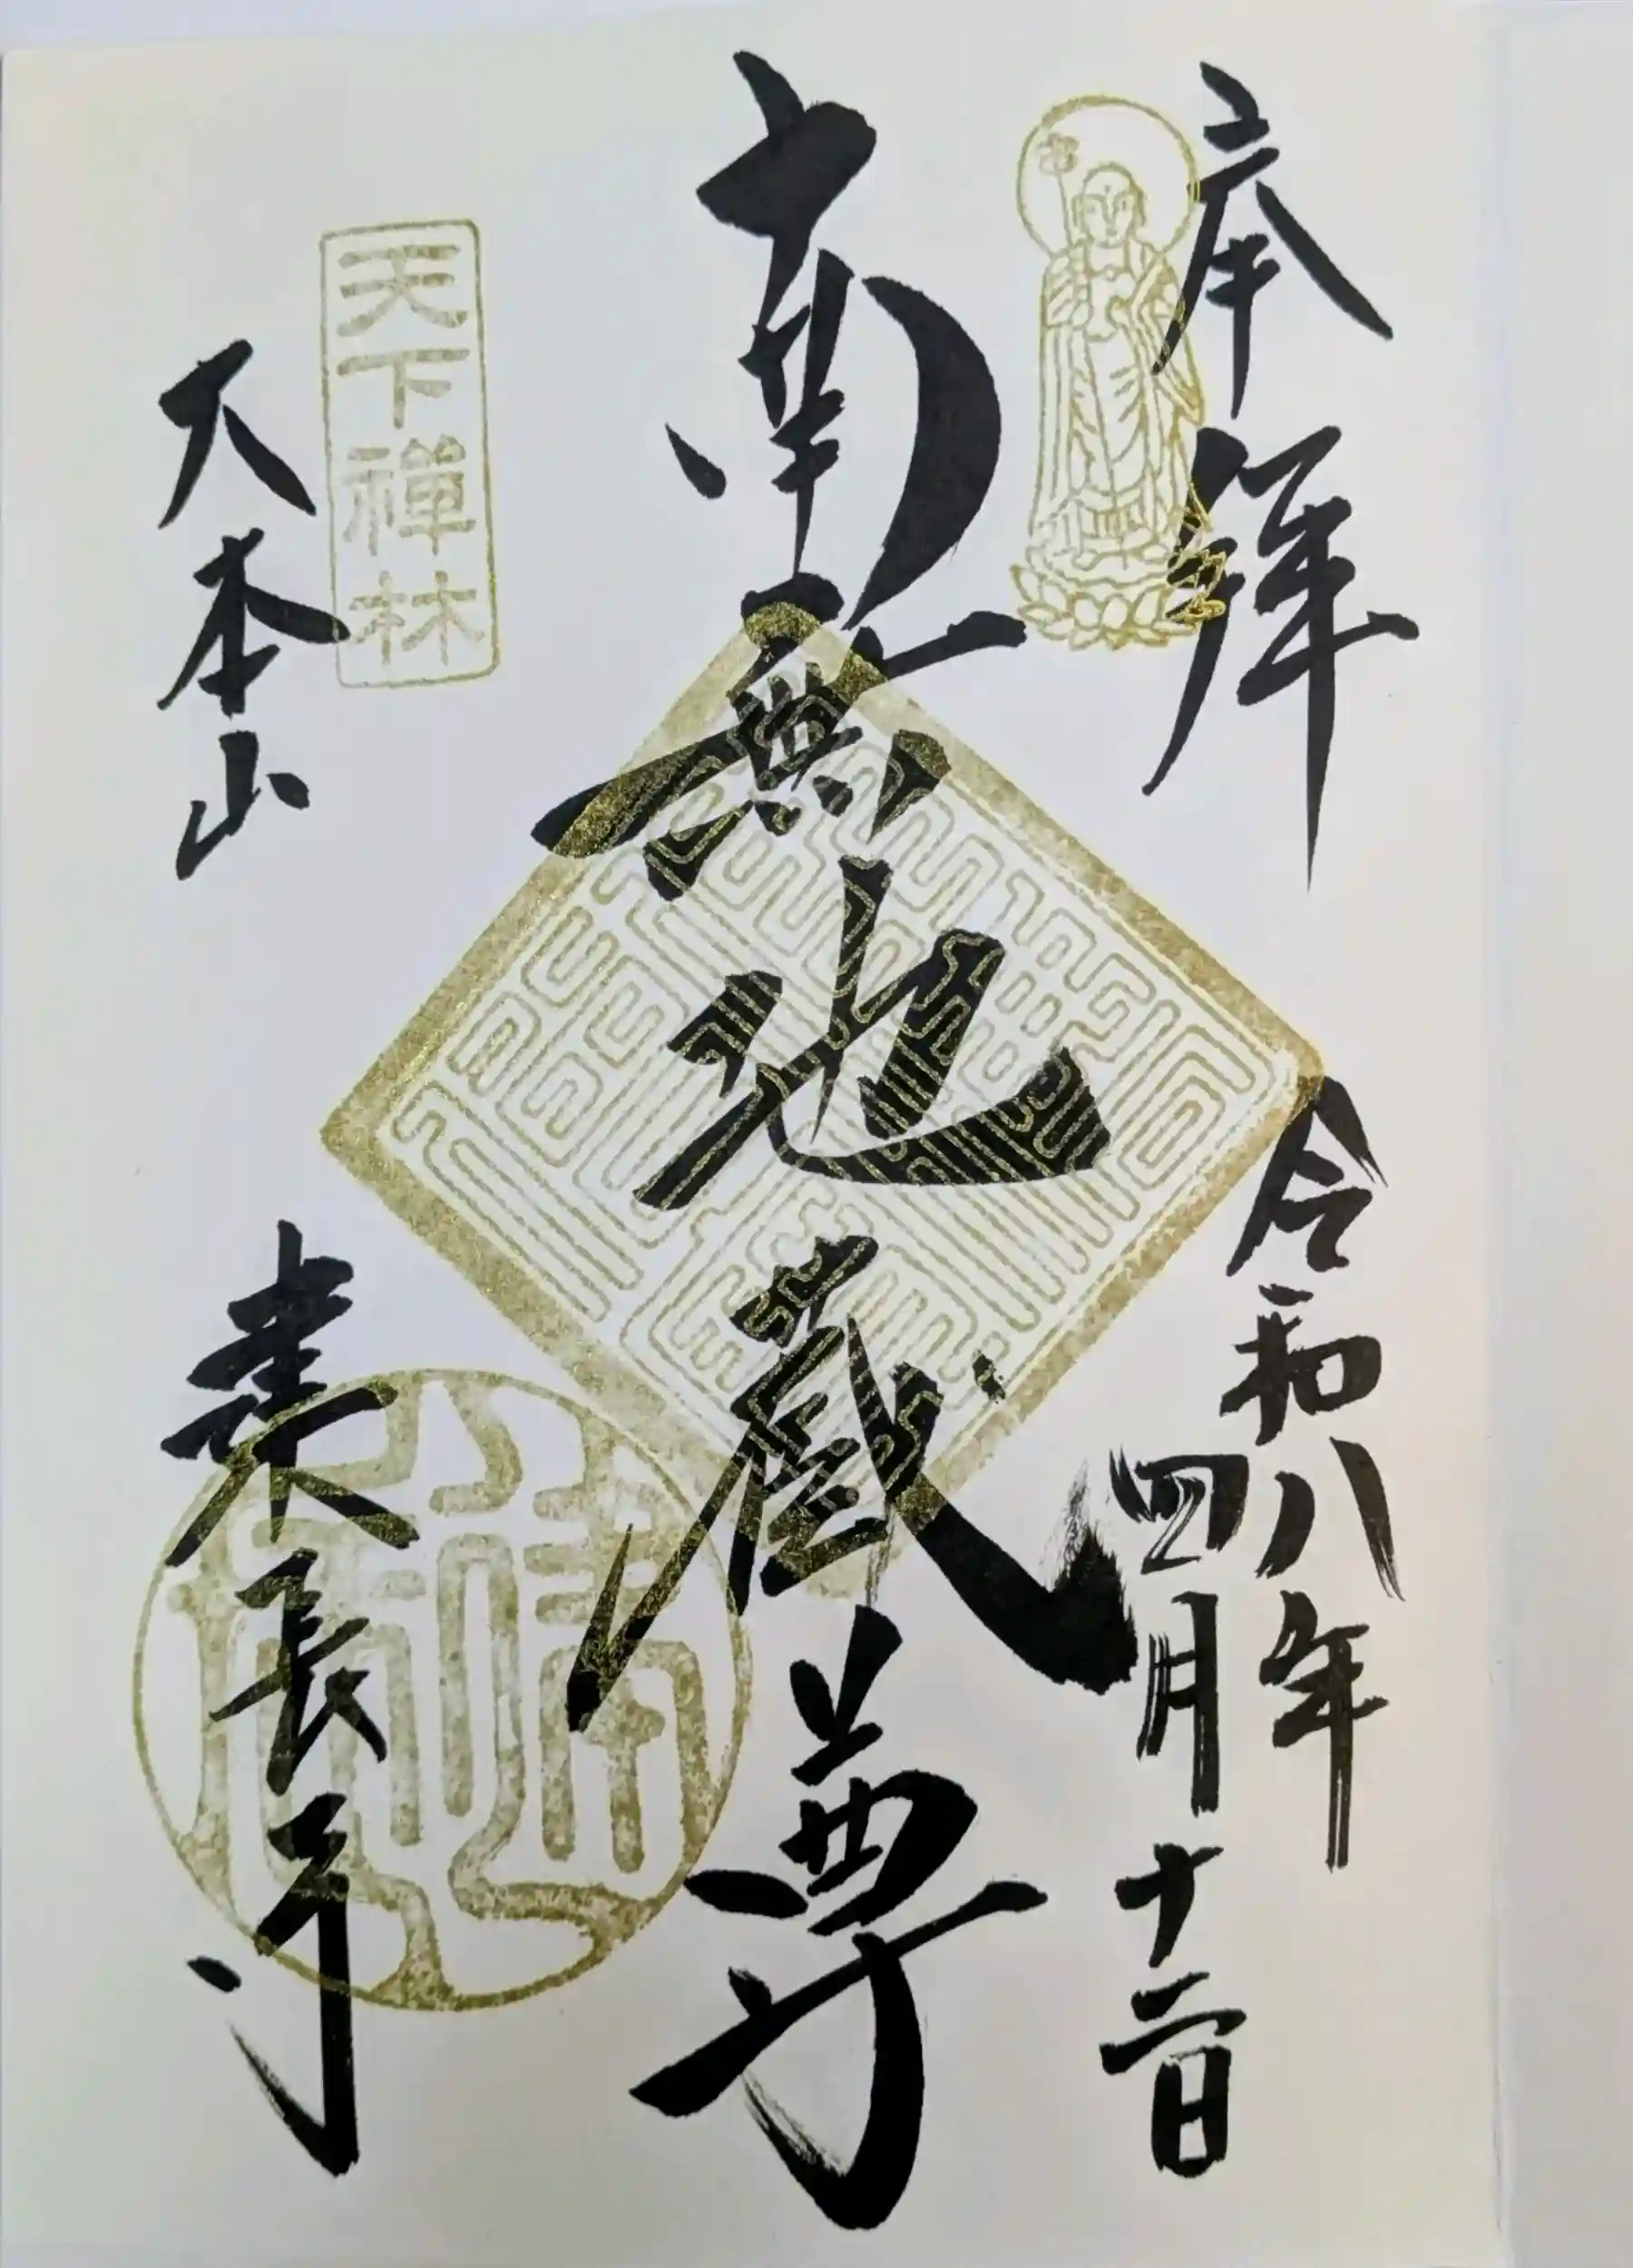 奉拝
令和八年
四月十二日
南無地蔵尊
天下禅林
大本山
建長寺